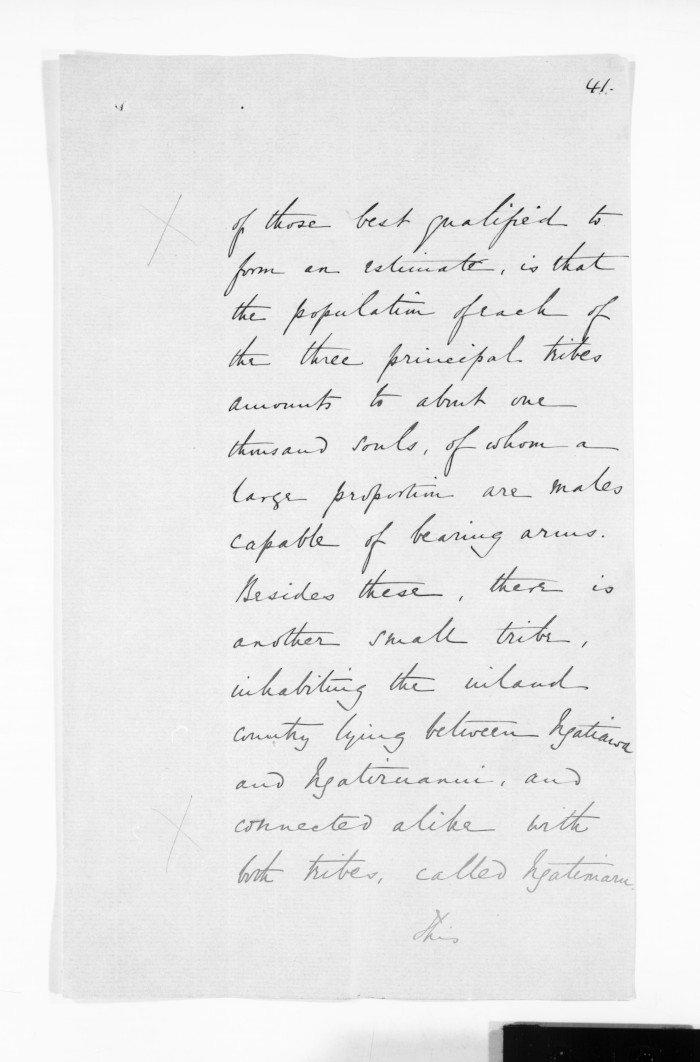 41.
of those best qualified to
form an estimate, is that
the population of each of
the three principal tribes
amounts to about one
thousand souls, of whom a
large proportion are males
capable of bearing arms.
Besides these, there is
another small tribe,
inhabiting the inland
country lying between Ngatiawa
and Ngatiruanui, and
connected alike with
both tribes, called Ngatimaru.
This